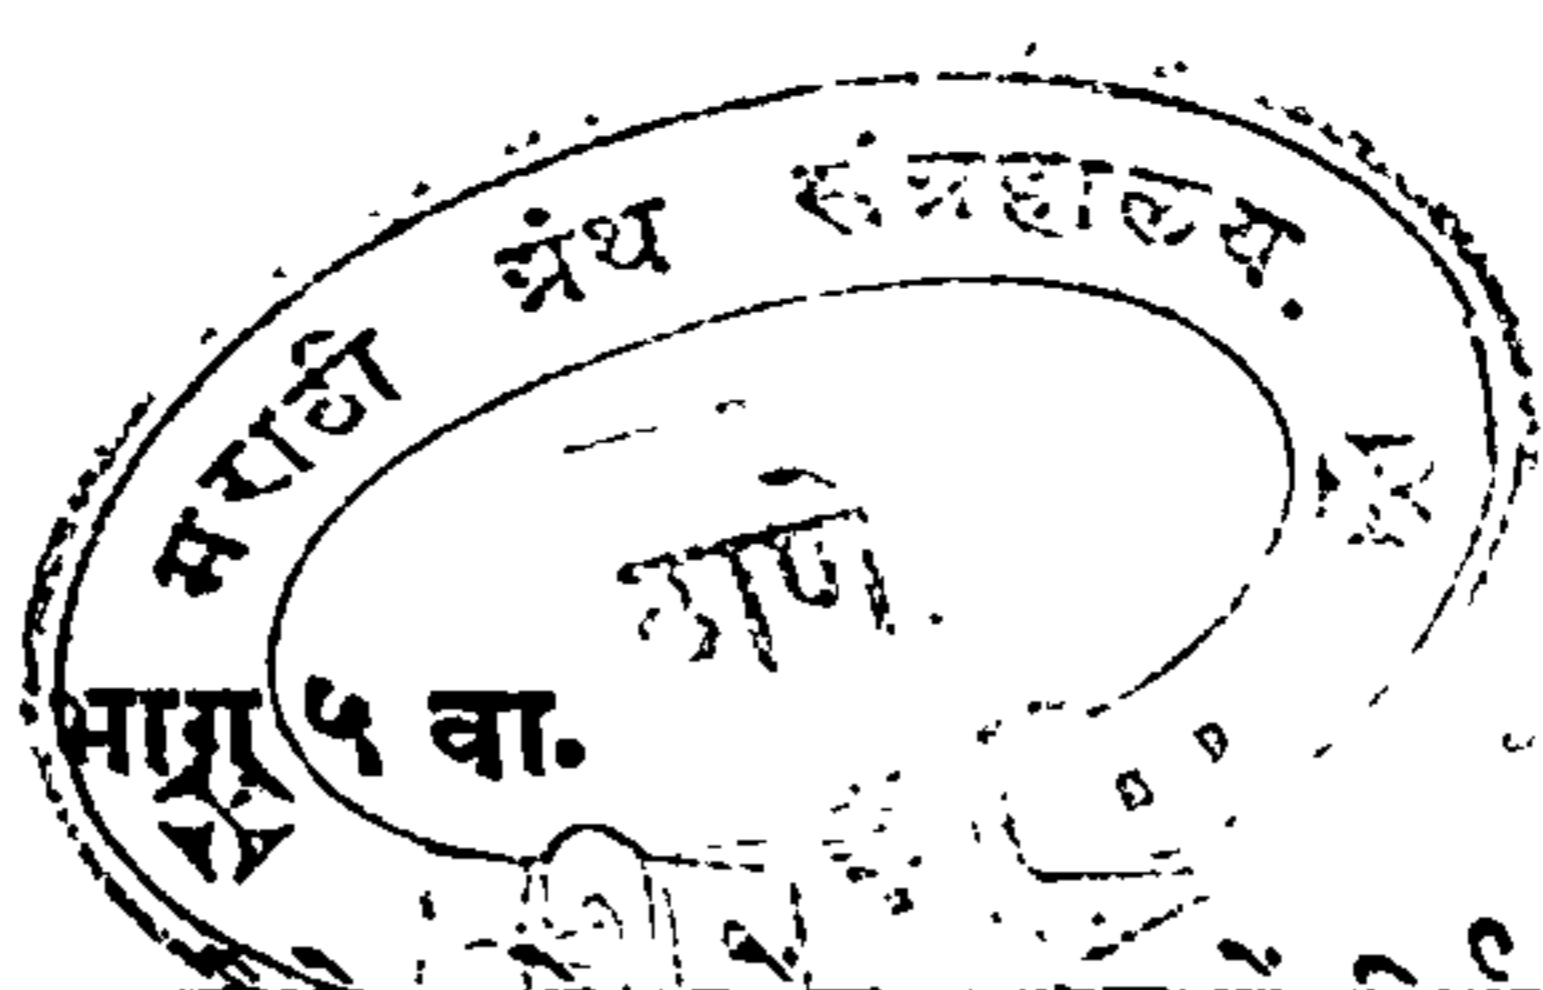 मराठी ग्रंथ संग्रहालय.
ठाणे.
भाग ५ वा.